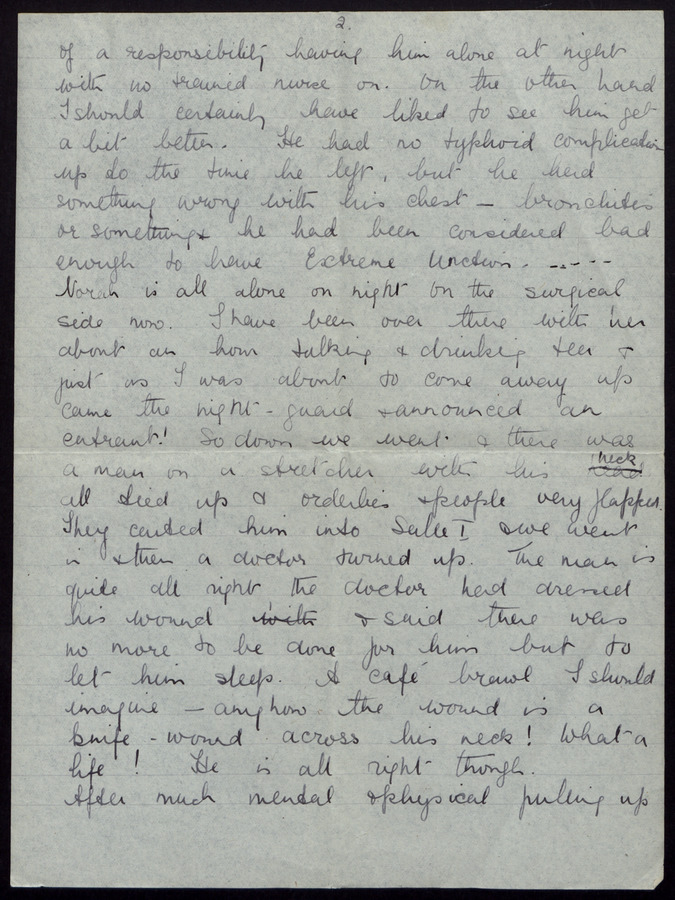 2.
of a responsibility having him alone at night
with no trained nurse on. On the other hand
I should certainly have liked to see him get
a bit better. He had no typhoid complication
up to the time he left, but he had
something wrong with his chest - bronchitis
or something & he had been considered bad
enough to have Extreme Unction. -----
Norah is all alone on night on the surgical
side now. I have been over there with her
about an hour talking & drinking tea &
just as I was about to come away up
came the night-guard & announced an
entrant! So down we went & there was
a man on a stretcher with his neck
all tied up & orderlies & people very flapped.
They carted him into Salle I & we went
in & then a doctor turned up. The man is
quite all right the doctor had dressed
his wound with & said there was
no more to be done for him but to
let him sleep. A café brawl I should
imagine - anyhow the wound is a
knife-wound across his neck! What a
life! He is all right though.
After much mental & physical pulling up